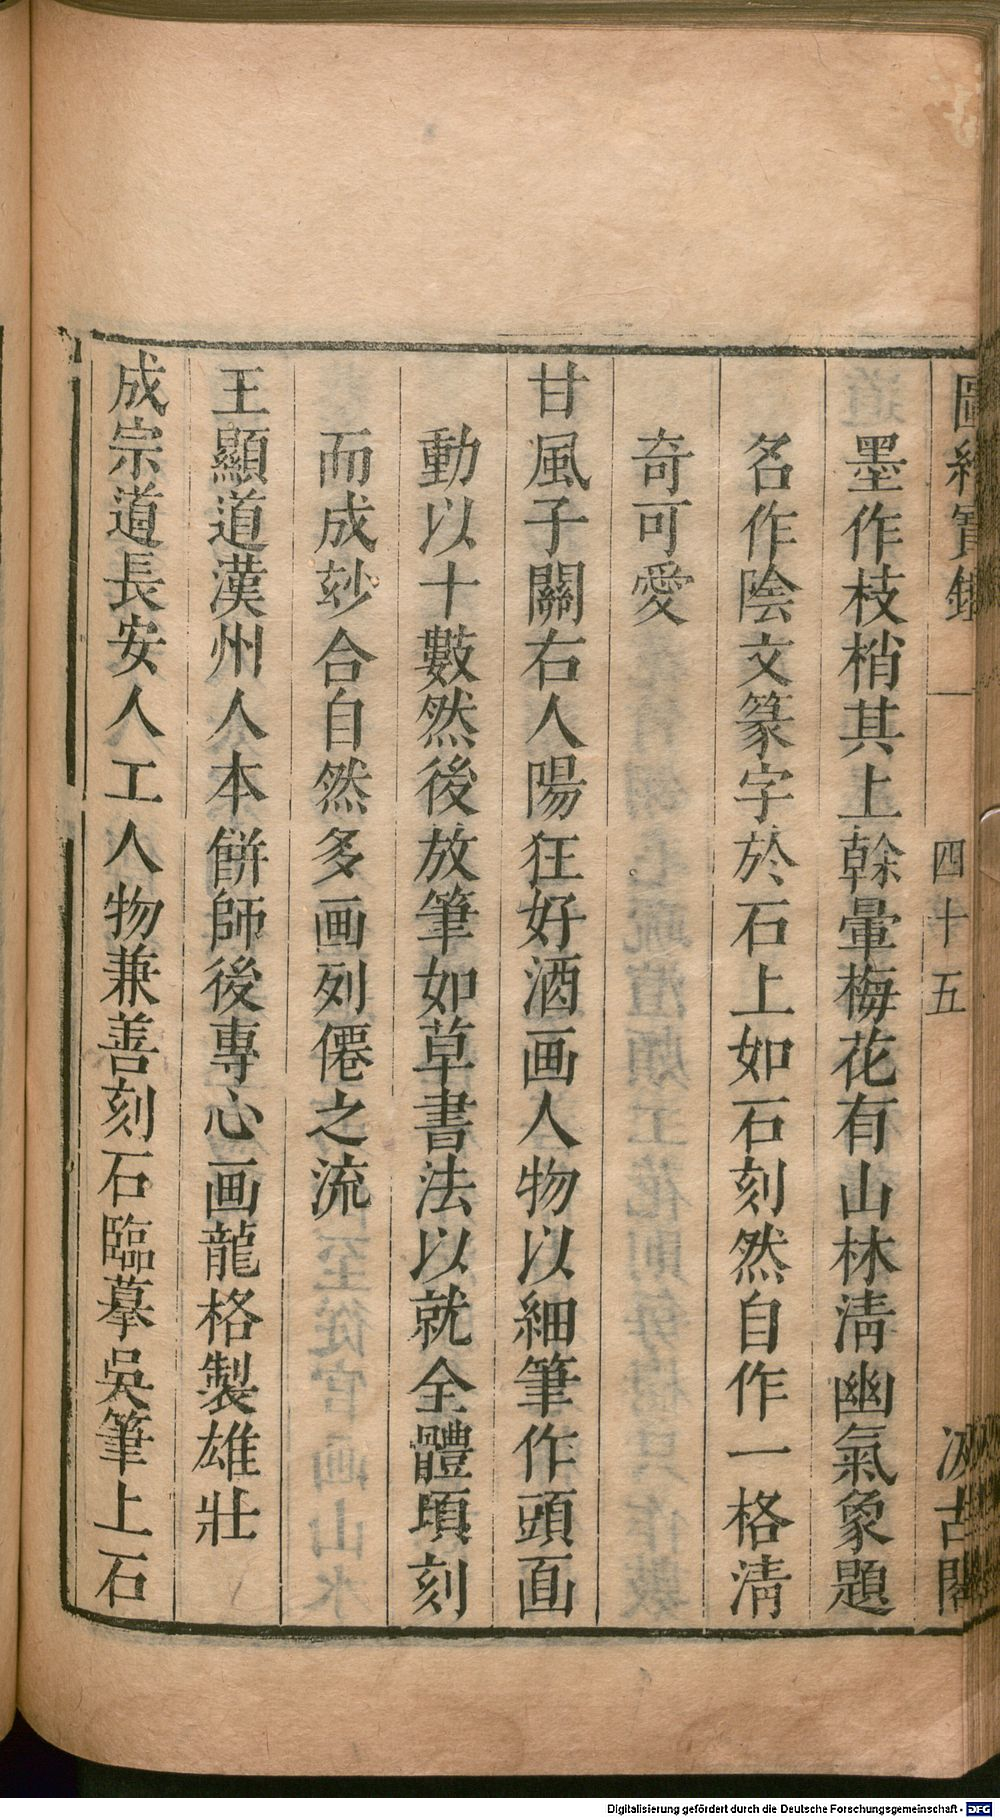 圖繪寶鑑 一 四十五 汲古閣
墨作枝梢其上幹暈梅花有山林淸幽氣象題
名作陰文篆字於石上如石刻然自作一格淸
奇可愛
甘風子關右人陽狂好酒画人物以細筆作頭面
動以十數然後放筆如草書法以就全體頃刻
而成玅合自然多画列僊之流
王顯道漢州人本餅師後專心画龍格製雄壯
成宗道長安人工人物兼善刻石臨摹吳筆上石
Digitalisierung gefördert durch die Deutsche Forschungsgemeinschaft - DFG